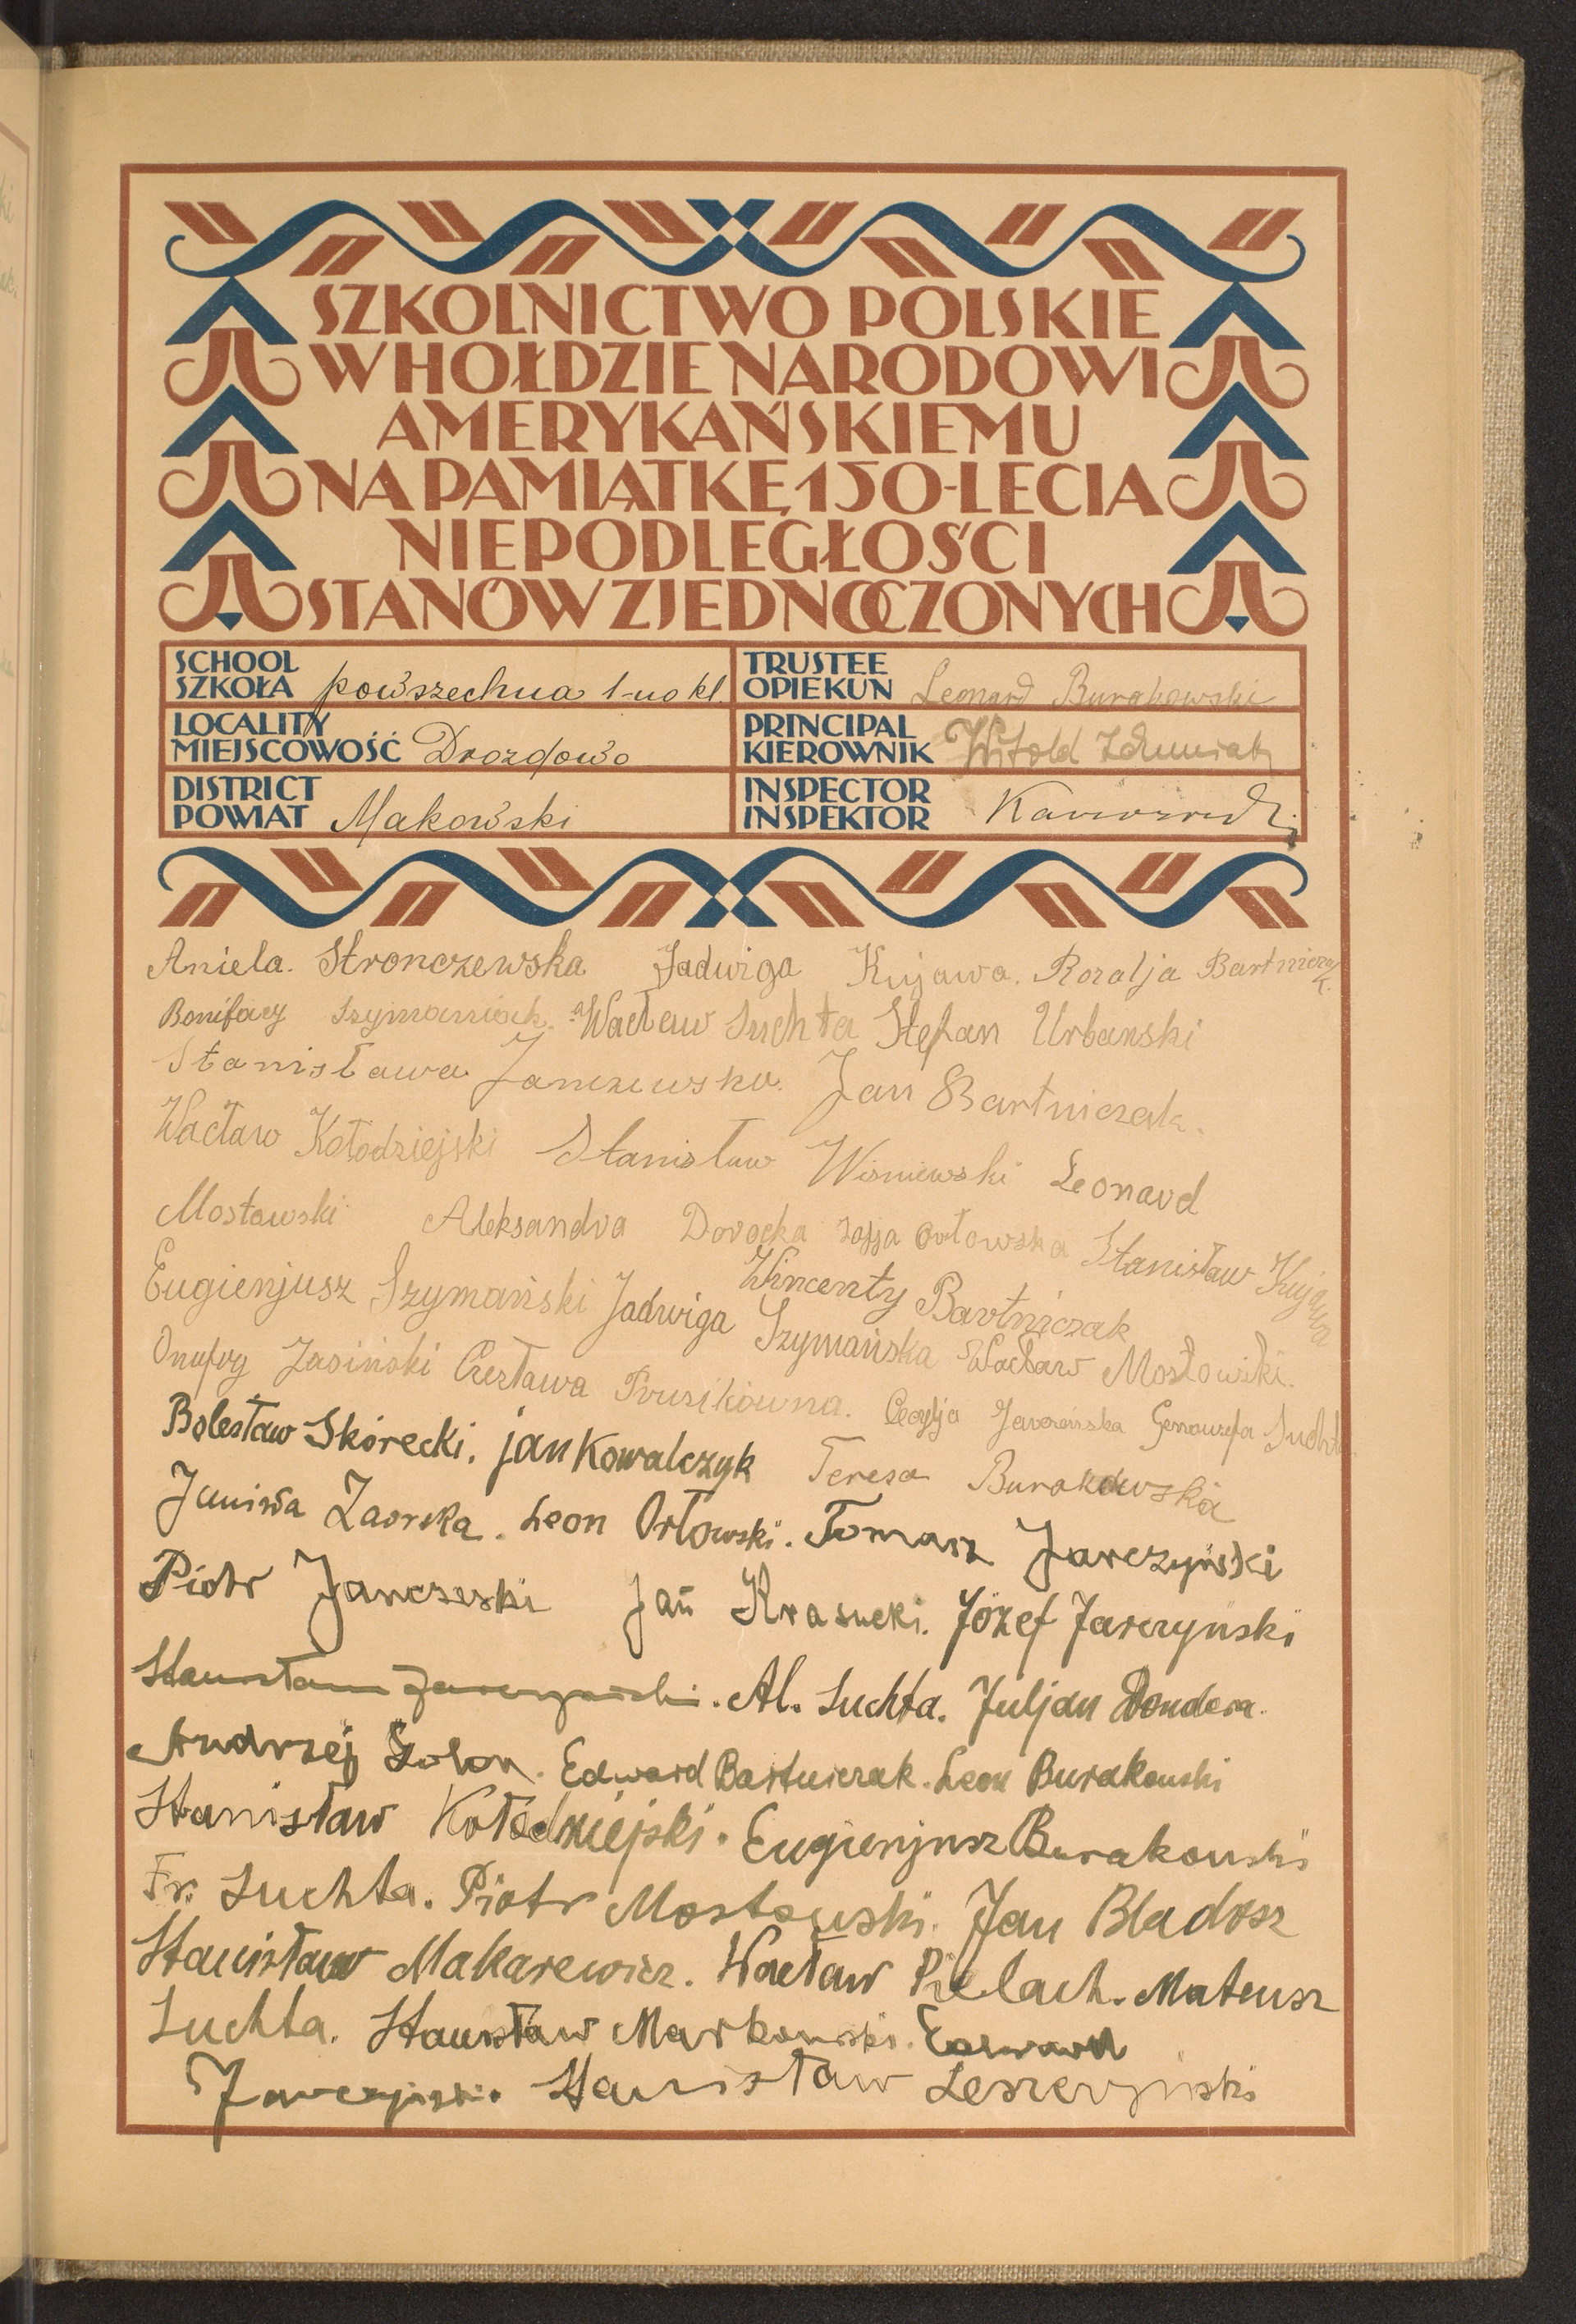 SZKOLNICTWO POLSKIE
W HOŁDZIE NARODOWI
AMERYKAŃSKIEMU
NA PAMIĄTKĘ 150-LECIA
NIEPODLEGŁOŚCI
STANÓW ZJEDNOCZONYCH
SCHOOL
SZKOŁA powszechna 1-no kl.
TRUSTEE
OPIEKUN Leonard Burakowski
LOCALITY
MIEJSCOWOŚĆ Drozdowo
PRINCIPAL
KIEROWNIK Witold
DISTRICT
POWIAT Makowski
INSPECTOR
INSPEKTOR
Aniela. Stronczewska Jadwiga Kujawa. Rozalja Bartniczak.
Bonifacy Szymaniak. Wacław Suchta Stefan Urbanski
Stanisława Janczewska. Jan Bartniczak.
Wacław Kołodziejski Stanisław Wisniewski Leonard
Mostowski Aleksandra Dorocka Zofja Orłowska Stanisław Kujawa
Wincenty Bartniczak
Eugienjusz Szymański Jadwiga Szymańska Wacław Mostowski.
Onufry Jasiński Czesława Prusikówna. Cecylja Jarczeńska Genowefa Suchta
Bolesław Skórecki. jan Kowalczyk Teresa Burakowska
Janina Zaorska. Leon Orłowski. Tomasz Jarczyński
Piotr Janczeski Jan Krasucki. Józef Jarczyński
Stanisław Jarczyński. Al. Suchta. Juljan Dondera.
Andrzej Edward Bartniczak. Leon Burakowski
Stanisław Kołodziejski. Eugienjusz Burakowski
Fr. Suchta. Piotr Mostowski. Jan Bladosz
Stanisław Makarewicz. Wacław Pielach. Mateusz
Suchta. Stanisław Markowski. Edward
Jarczyński. Stanisław Leszczyński